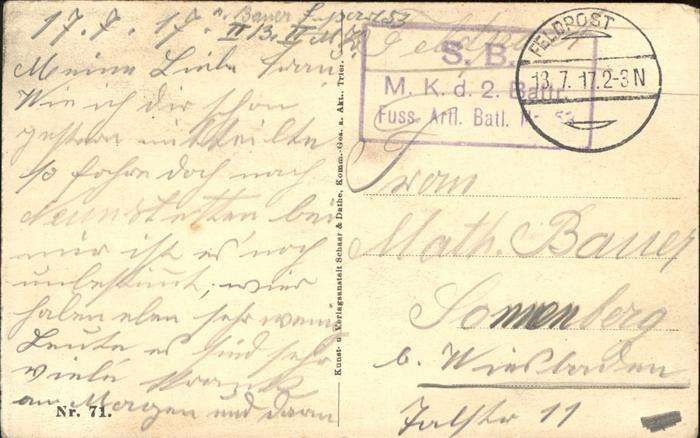 17.7.17.
Bauer
II
Meine Liebe Frau,
Wie ich dir schon
gestern mitteilte
so fahre doch nach
Neunstetten bei
mir ist es noch
unbestimmt, wier
haben eben sehr wenig
Leute es sind sehr
viele Krank
am Magen und daran
Nr. 71.
Kunst- u. Verlagsanstalt Schaar & Dathe, Komm.-Ges. a. Akt., Trier.
Feldpost
S. B.
M. K. d. 2. Battr.
Fuss- Artl. Batl. Nr. 53
FELDPOST
13.7.17.2-3N
Frau
Math. Bauer
Sonnenberg
b. Wiesbaden
Talstr 11